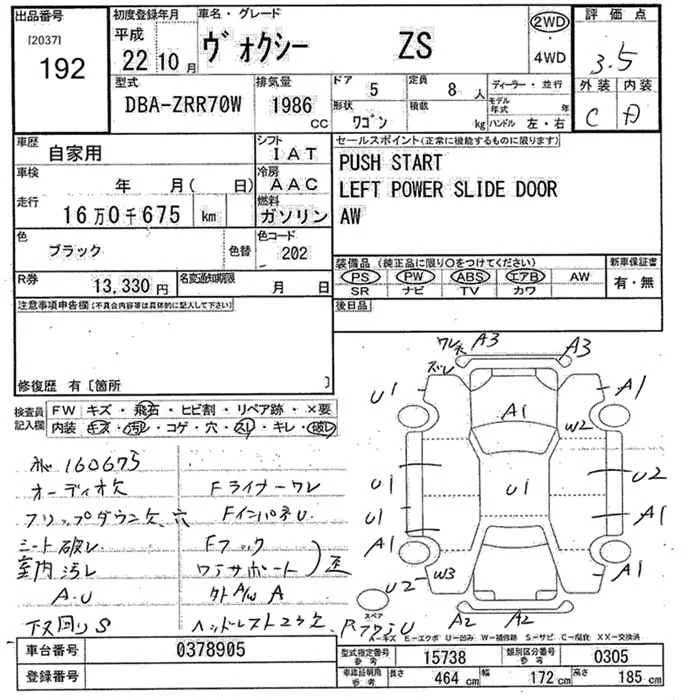 出品番号
[2037]
192
初度登録年月
平成
22年10月
車名・グレード
ヴォクシー ZS
2WD
・
4WD
評価点
3.5
外装 内装
C D
型式
DBA-ZRR70W
排気量
1986 CC
ドア 5
定員 8人
形状 ワゴン
積載 kg
ディーラー・並行
モデル年式 年
ハンドル 左・右
車歴 自家用
シフト IAT
車検 年 月( 日)
冷房 AAC
走行 16万0千675 km
燃料 ガソリン
色 ブラック 色替
色コード 202
R券 13,330円
名変通知期限 月 日
セールスポイント(正常に機能するものに限ります)
PUSH START
LEFT POWER SLIDE DOOR
AW
装備品(純正品に限り○をつけてください)
PS PW ABS エアB AW
SR ナビ TV カワ
新車保証書
有・無
後日品
注意事項申告欄(不具合内容等は具体的に記入して下さい)
修復歴 有〔箇所 〕
検査員記入欄
FW キズ・飛石・ヒビ割・リペア跡・×要
内装 キズ・汚レ・コゲ・穴・スレ・キレ・破レ
160675
オーディオ欠
フリップダウン欠、穴
シート破レ
室内汚レ
A.U
下廻りS
Fライナーワレ
FインパネU
Fフック
外A/W A
ヘッドレスト2ヶ欠
ワレ A3 A3
ズレ
U1 A1 A1
W2
U1 U1 U2
U1 A1
A1 A1
U2 W3
A2 A2
スペア
A-キズ E-エクボ U-凹み W-補修跡 S-サビ C-腐食 XX-交換済
車台番号 0378905
登録番号
型式指定番号 参考 15738
類別区分番号 参考 0305
車検証明用 参考 長さ 464 cm 幅 172 cm 高さ 185 cm